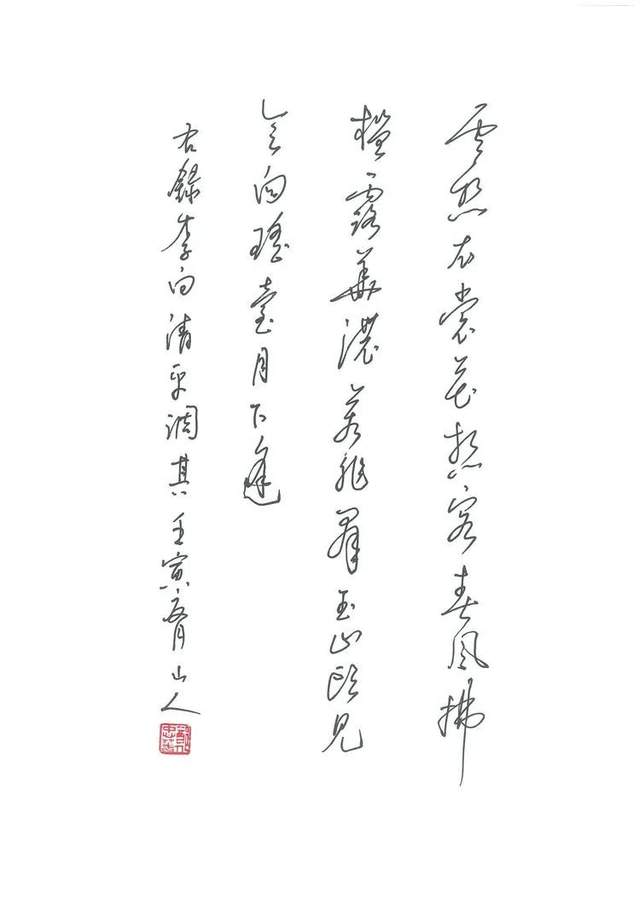 雲想衣裳花想容春風拂
檻露華濃若非羣玉山頭見
會向瑤臺月下逢
右錄李白清平調其壬寅山人